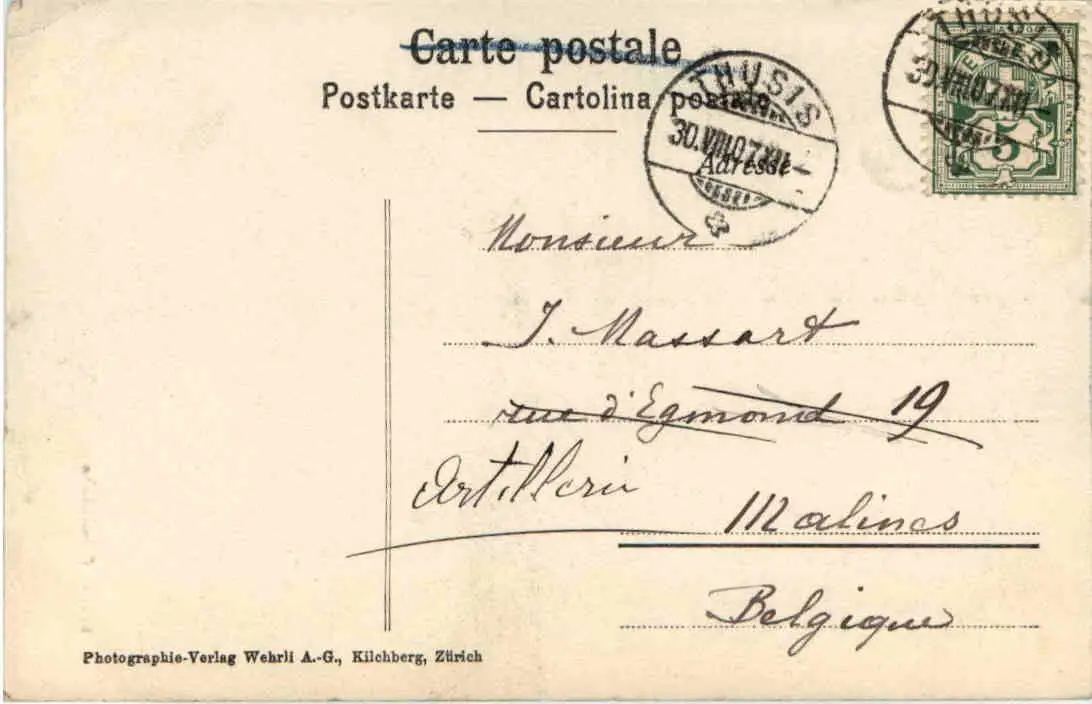 Carte postale
Postkarte — Cartolina postale
THUSIS
30.VIII.07.XII
THUSIS
30.VIII.07.XII
5
Adresse
Monsieur
J. Massart
rue d'Egmond 19
Artillerie
Malines
Belgique
Photographie-Verlag Wehrli A.-G., Kilchberg, Zürich